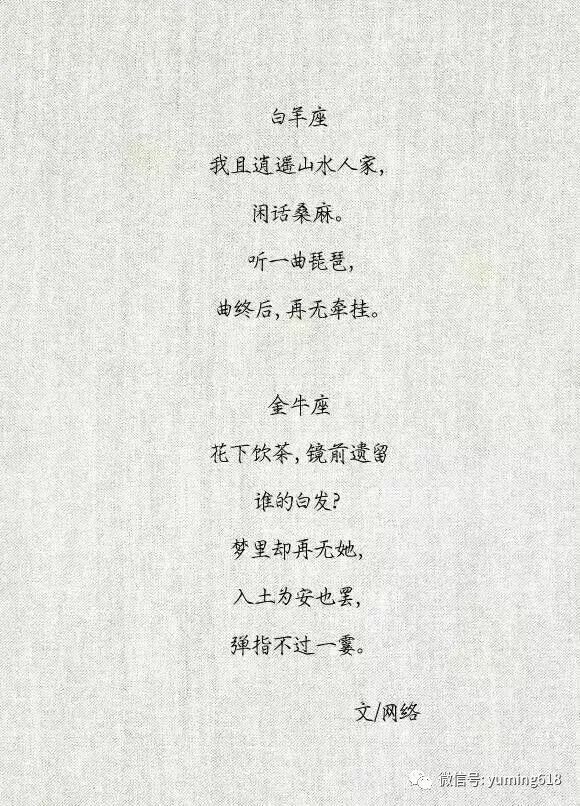 白羊座
我且逍遥山水人家,
闲话桑麻。
听一曲琵琶,
曲终后,再无牵挂。
金牛座
花下饮茶,镜前遗留
谁的白发?
梦里却再无她,
入土为安也罢,
弹指不过一霎。
文/网络
微信号: yuming618